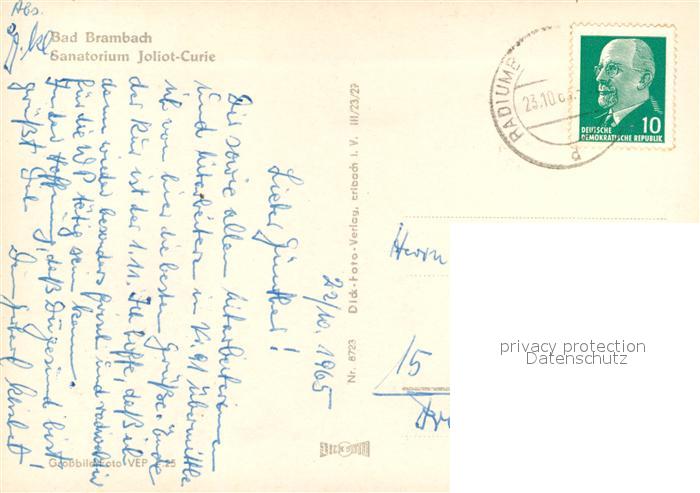 Abs.
Bad Brambach
Sanatorium Joliot-Curie
22/10. 1965
Lieber Günther!
Dir sowie allen Mitarbeiterinnen
und Mitarbeitern in K. 91 übermittle
ich von hier die besten Grüße. Ende
der Kur ist der 1.11. Ich hoffe, daß ich
dann wieder besonders frisch und radioaktiv
für die WP tätig sein kann.
In der Hoffnung, daß Du gesund bist
grüßt Dich
Dein
Großbild-Foto VEP -.25
Nr. 8723 Dick-Foto-Verlag, Erlbach i. V. III/23/29
DICK FOTO
RADIUMB
23.10.65
d
10
DEUTSCHE
DEMOKRATISCHE REPUBLIK
Herrn
15
privacy protection
Datenschutz